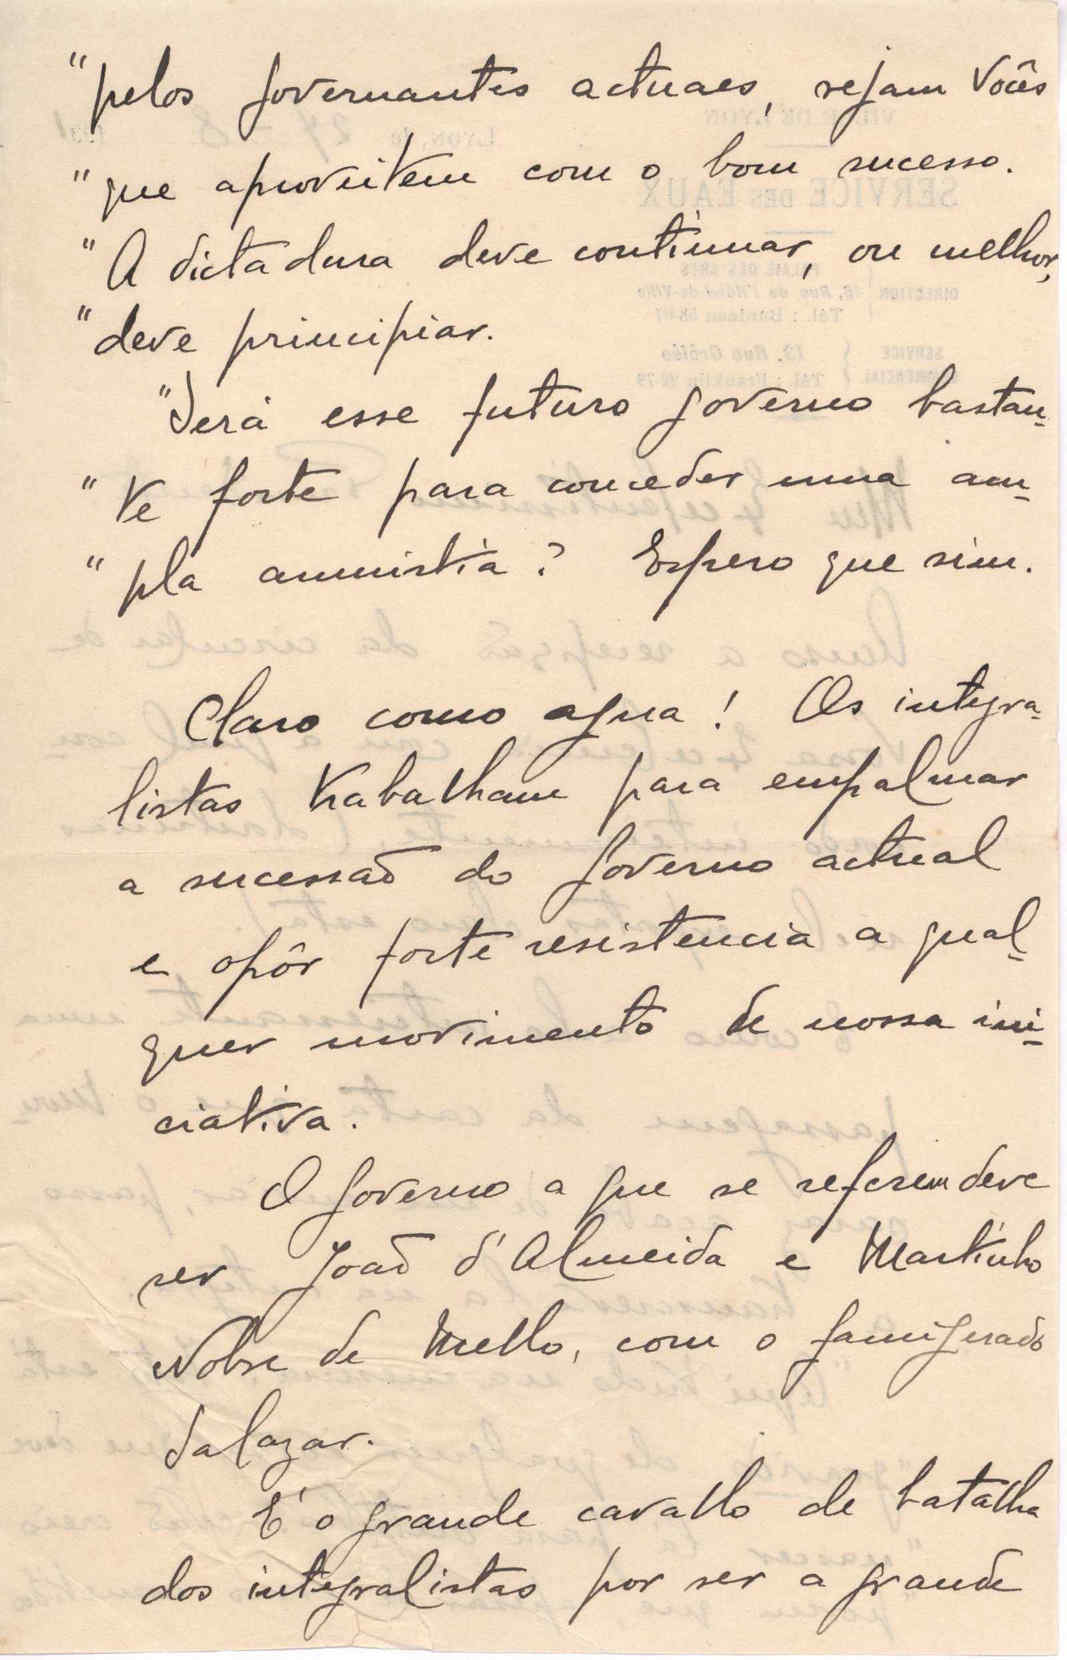 "pelos governantes actuaes, sejam Vocês
"que aproveitem com o bom sucesso.
"A dictadura deve continuar, ou melhor,
"deve principiar.
"Será esse futuro governo bastan-
"te forte para conceder uma am-
"pla amnistia? Espero que sim.
Claro como agua! Os integra-
listas trabalham para empalmar
a sucessão do governo actual
e opôr forte resistencia a qual-
quer movimento de nossa ini-
ciativa.
O governo a que se referem deve
ser João d'Almeida e Martinho
Nobre de Mello, com o famigerado
Salazar.
E' o grande cavallo de batalha
dos integralistas por ser a grande